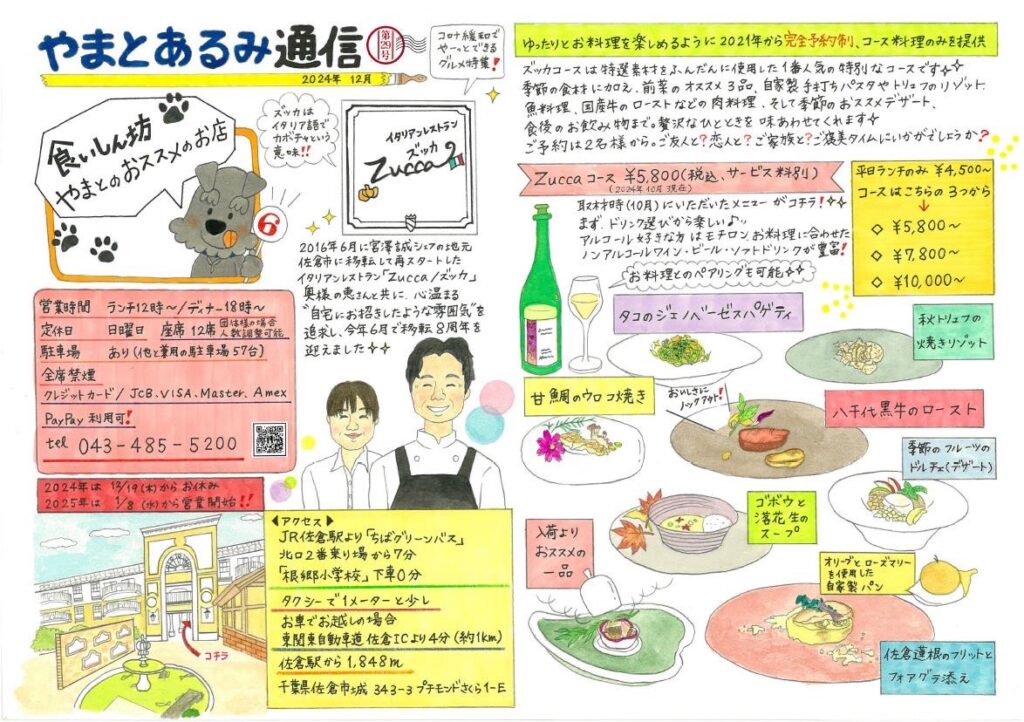 やまとあるみ通信
第29号
2024年 12月
コロナ緩和で
やーっとできる
グルメ特集!
食いしん坊
やまとのおススメのお店
6
ズッカは
イタリア語で
カボチャという
意味!!
イタリアンレストラン
ズッカ
Zucca
2016年6月に宮澤誠シェフの地元
佐倉市に移転して再スタートした
イタリアンレストラン「Zucca/ズッカ」
奥様の恵さんと共に、心温まる
"自宅にお招きしたような雰囲気"を
追求し、今年6月で移転8周年を
迎えました
営業時間 ランチ12時〜/ディナー18時〜
定休日 日曜日 座席 12席 団体様の場合
人数調整可能
駐車場 あり(他と兼用の駐車場57台)
全席禁煙
クレジットカード/JCB.VISA.Master.Amex
PayPay 利用可!
tel 043-485-5200
2024年は 12/19(木)からお休み
2025年は 1/8(水)から営業開始!!
コチラ
◀アクセス▶
JR佐倉駅より「ちばグリーンバス」
北口2番乗り場から7分
「根郷小学校」下車0分
タクシーで1メーターと少し
お車でお越しの場合
東関東自動車道 佐倉ICより4分(約1km)
佐倉駅から1,848m
千葉県佐倉市城343-3プチモンドさくら1-E
ゆったりとお料理を楽しめるように2021年から完全予約制、コース料理のみを提供
ズッカコースは特選素材をふんだんに使用した1番人気の特別なコースです
季節の食材に加え、前菜のオススメ3品、自家製手打ちパスタやトリュフのリゾット、
魚料理、国産牛のローストなどの肉料理、そして季節のおススメデザート、
食後のお飲み物まで。贅沢なひとときを味あわせてくれます
ご予約は2名様から。ご友人と?恋人と?ご家族と?ご褒美タイムにいかがでしょうか?
Zuccaコース ¥5,800(税込、サービス料別)
(2024年10月現在)
平日ランチのみ ¥4,500〜
コースはこちらの3つから
↓
◇ ¥5,800〜
◇ ¥7,800〜
◇ ¥10,000〜
取材時(10月)にいただいたメニューがコチラ!
まず、ドリンク選びから楽しい♪
アルコール好きな方はモチロン、お料理に合わせた
ノンアルコールワイン・ビール・ソフトドリンクが豊富!
お料理とのペアリングも可能
タコのジェノベーゼスパゲティ
秋トリュフの
焼きリゾット
甘鯛のウロコ焼き
おいしさに
ノックアウト!
八千代黒牛のロースト
季節のフルーツの
ドルチェ(デザート)
ゴボウと
落花生の
スープ
入荷より
おススメの
一品
オリーブとローズマリー
を使用した
自家製パン
佐倉蓮根のフリットと
フォアグラ添え